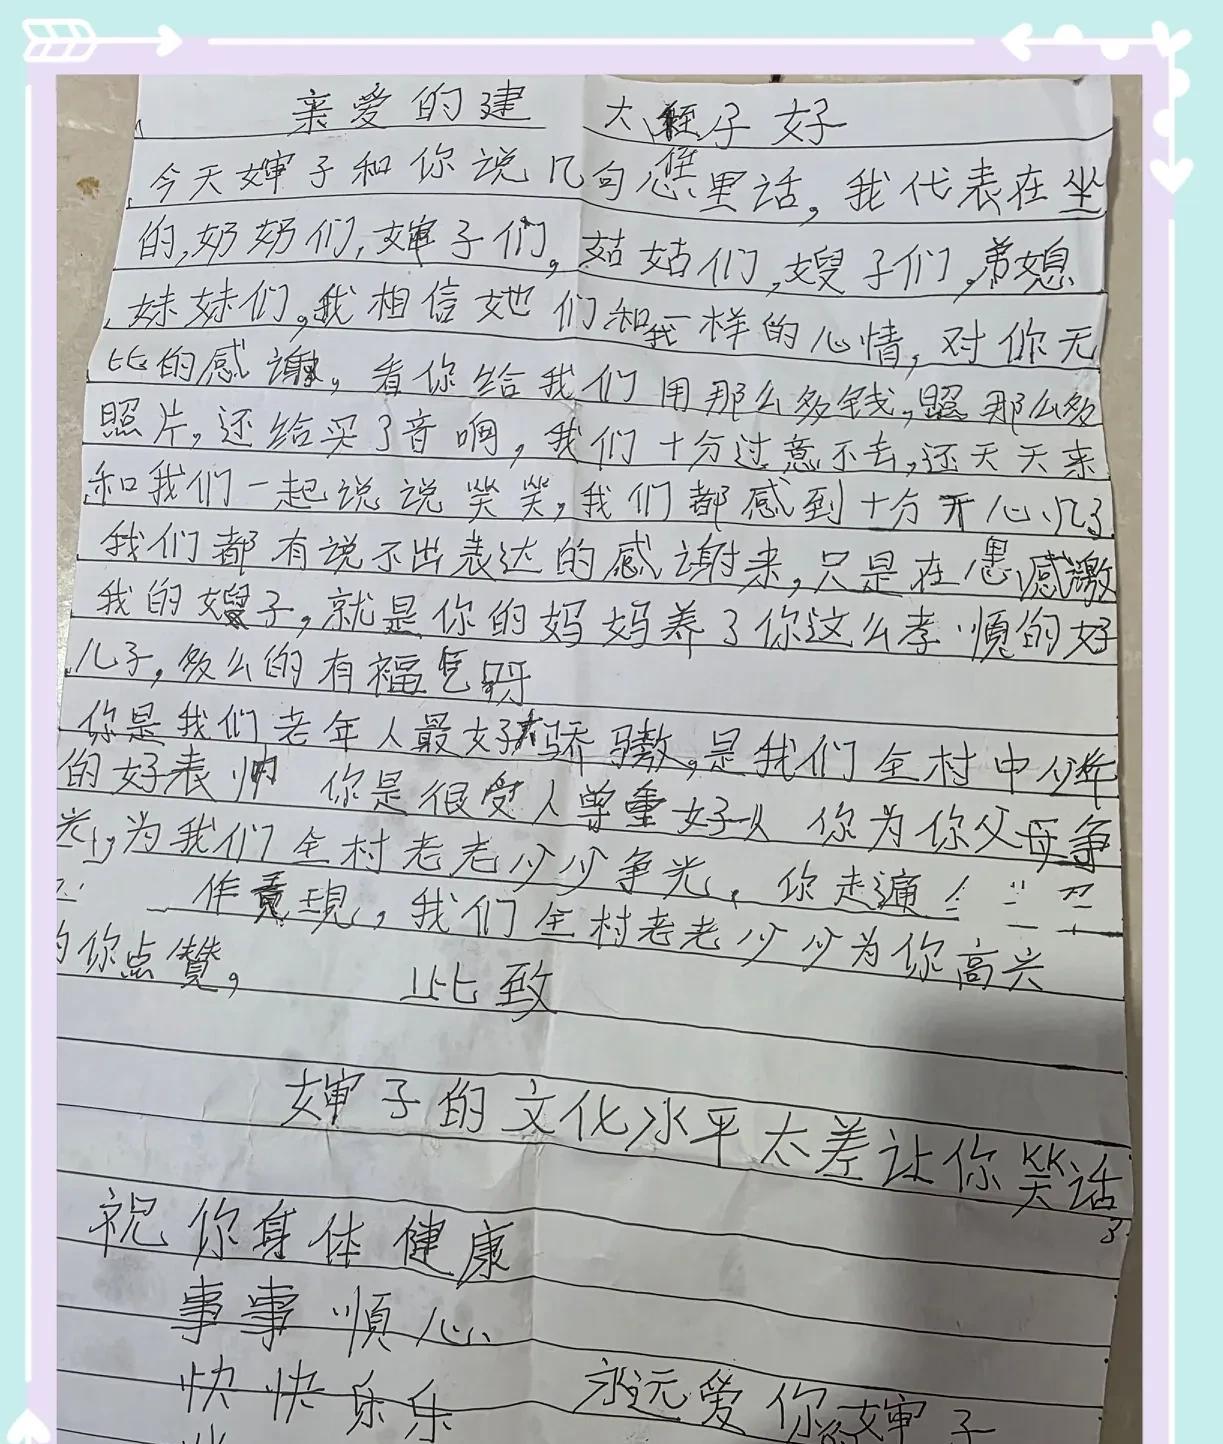 亲爱的建 大侄子好
今天婶子和你说几句心里话，我代表在坐
的,奶奶们,婶子们,姑姑们,嫂子们,弟媳
妹妹们,我相信她们和我一样的心情,对你无
比的感谢,看你给我们用那么多钱,照那么多
照片,还给买了音响,我们十分过意不去,还天天来
和我们一起说说笑笑,我们都感到十分开心,几了
我们都有说不出表达的感谢来,只是在 感激
我的嫂子,就是你的妈妈养了你这么孝顺的好
儿子,多么的有福气呀
你是我们老年人最好 骄骜,是我们全村中少年
的好表 你是很受人尊重好人 你为你父母争
光,为我们全村老老少少争光,你走遍
作 现,我们全村老老少少为你高兴
你点赞, 此致
婶子的文化水平太差让你笑话
了
祝你身体健康
事事顺心
快快乐乐 永远爱你 婶子